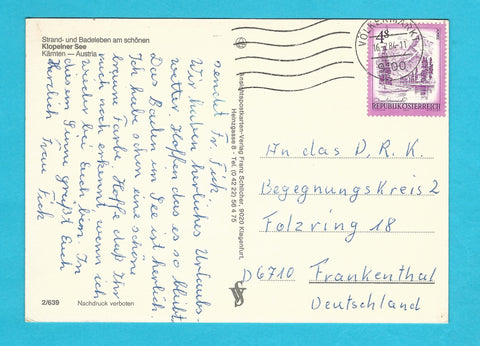 Strand- und Badeleben am schönen
Klopeiner See
Kärnten — Austria
sendet Fr. Fick.
Wir haben herrliches Urlaubs-
wetter. Hoffen das es so bleibt
Das Baden im See ist herlich.
Ich habe schon eine schöne
braune Farbe. Hoffe daß Ihr
mich noch erkennt wenn ich
wieder bei Euch bin. In
diesem Sinne grüßt Euch
Herzlich Frau Fick
2/639
Nachdruck verboten
Ansichtspostkarten-Verlag Franz Schilcher, 9020 Klagenfurt,
Heinzgasse 8 - Tel. (0 42 22) 56 4 75
VÖLKERMARKT
84-11
9100
4S
REPUBLIK ÖSTERREICH
An das D.R.K.
Begegnungskreis 2
Folzring 18
D6710 Frankenthal
Deutschland